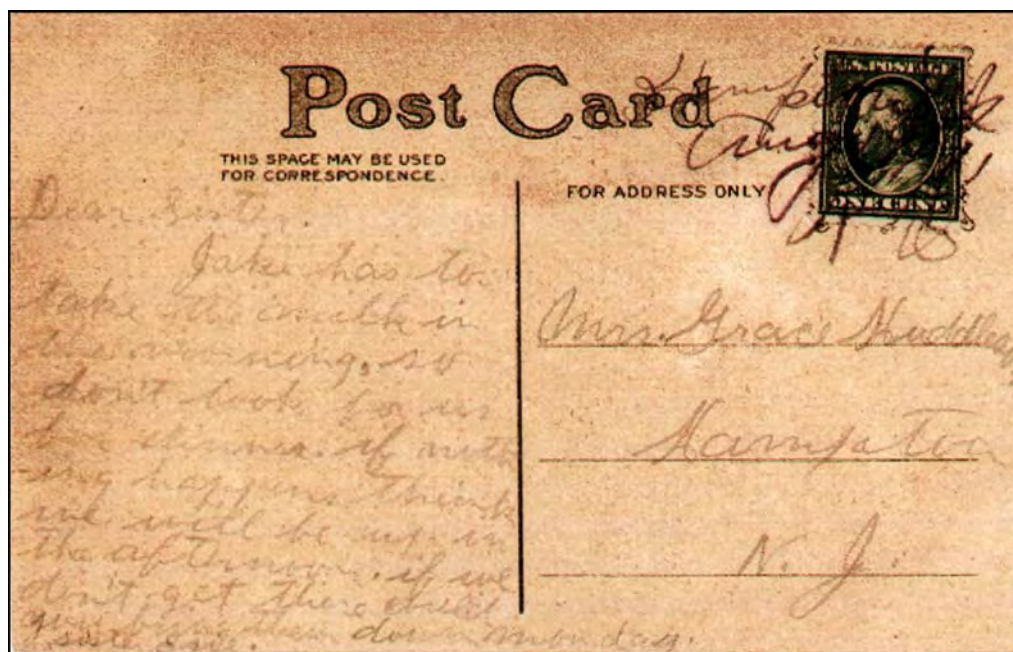 Post Card
THIS SPACE MAY BE USED
FOR CORRESPONDENCE.
FOR ADDRESS ONLY
U.S. POSTAGE
ONE CENT
Dear Sister,
Jake has to
take the milk in
the morning, so
don't look for us
for dinner. if noth
ing happens think
we will be up in
the afternoon. if we
don't get there
down monday.
Mrs. Grace
Hampton
N. J.